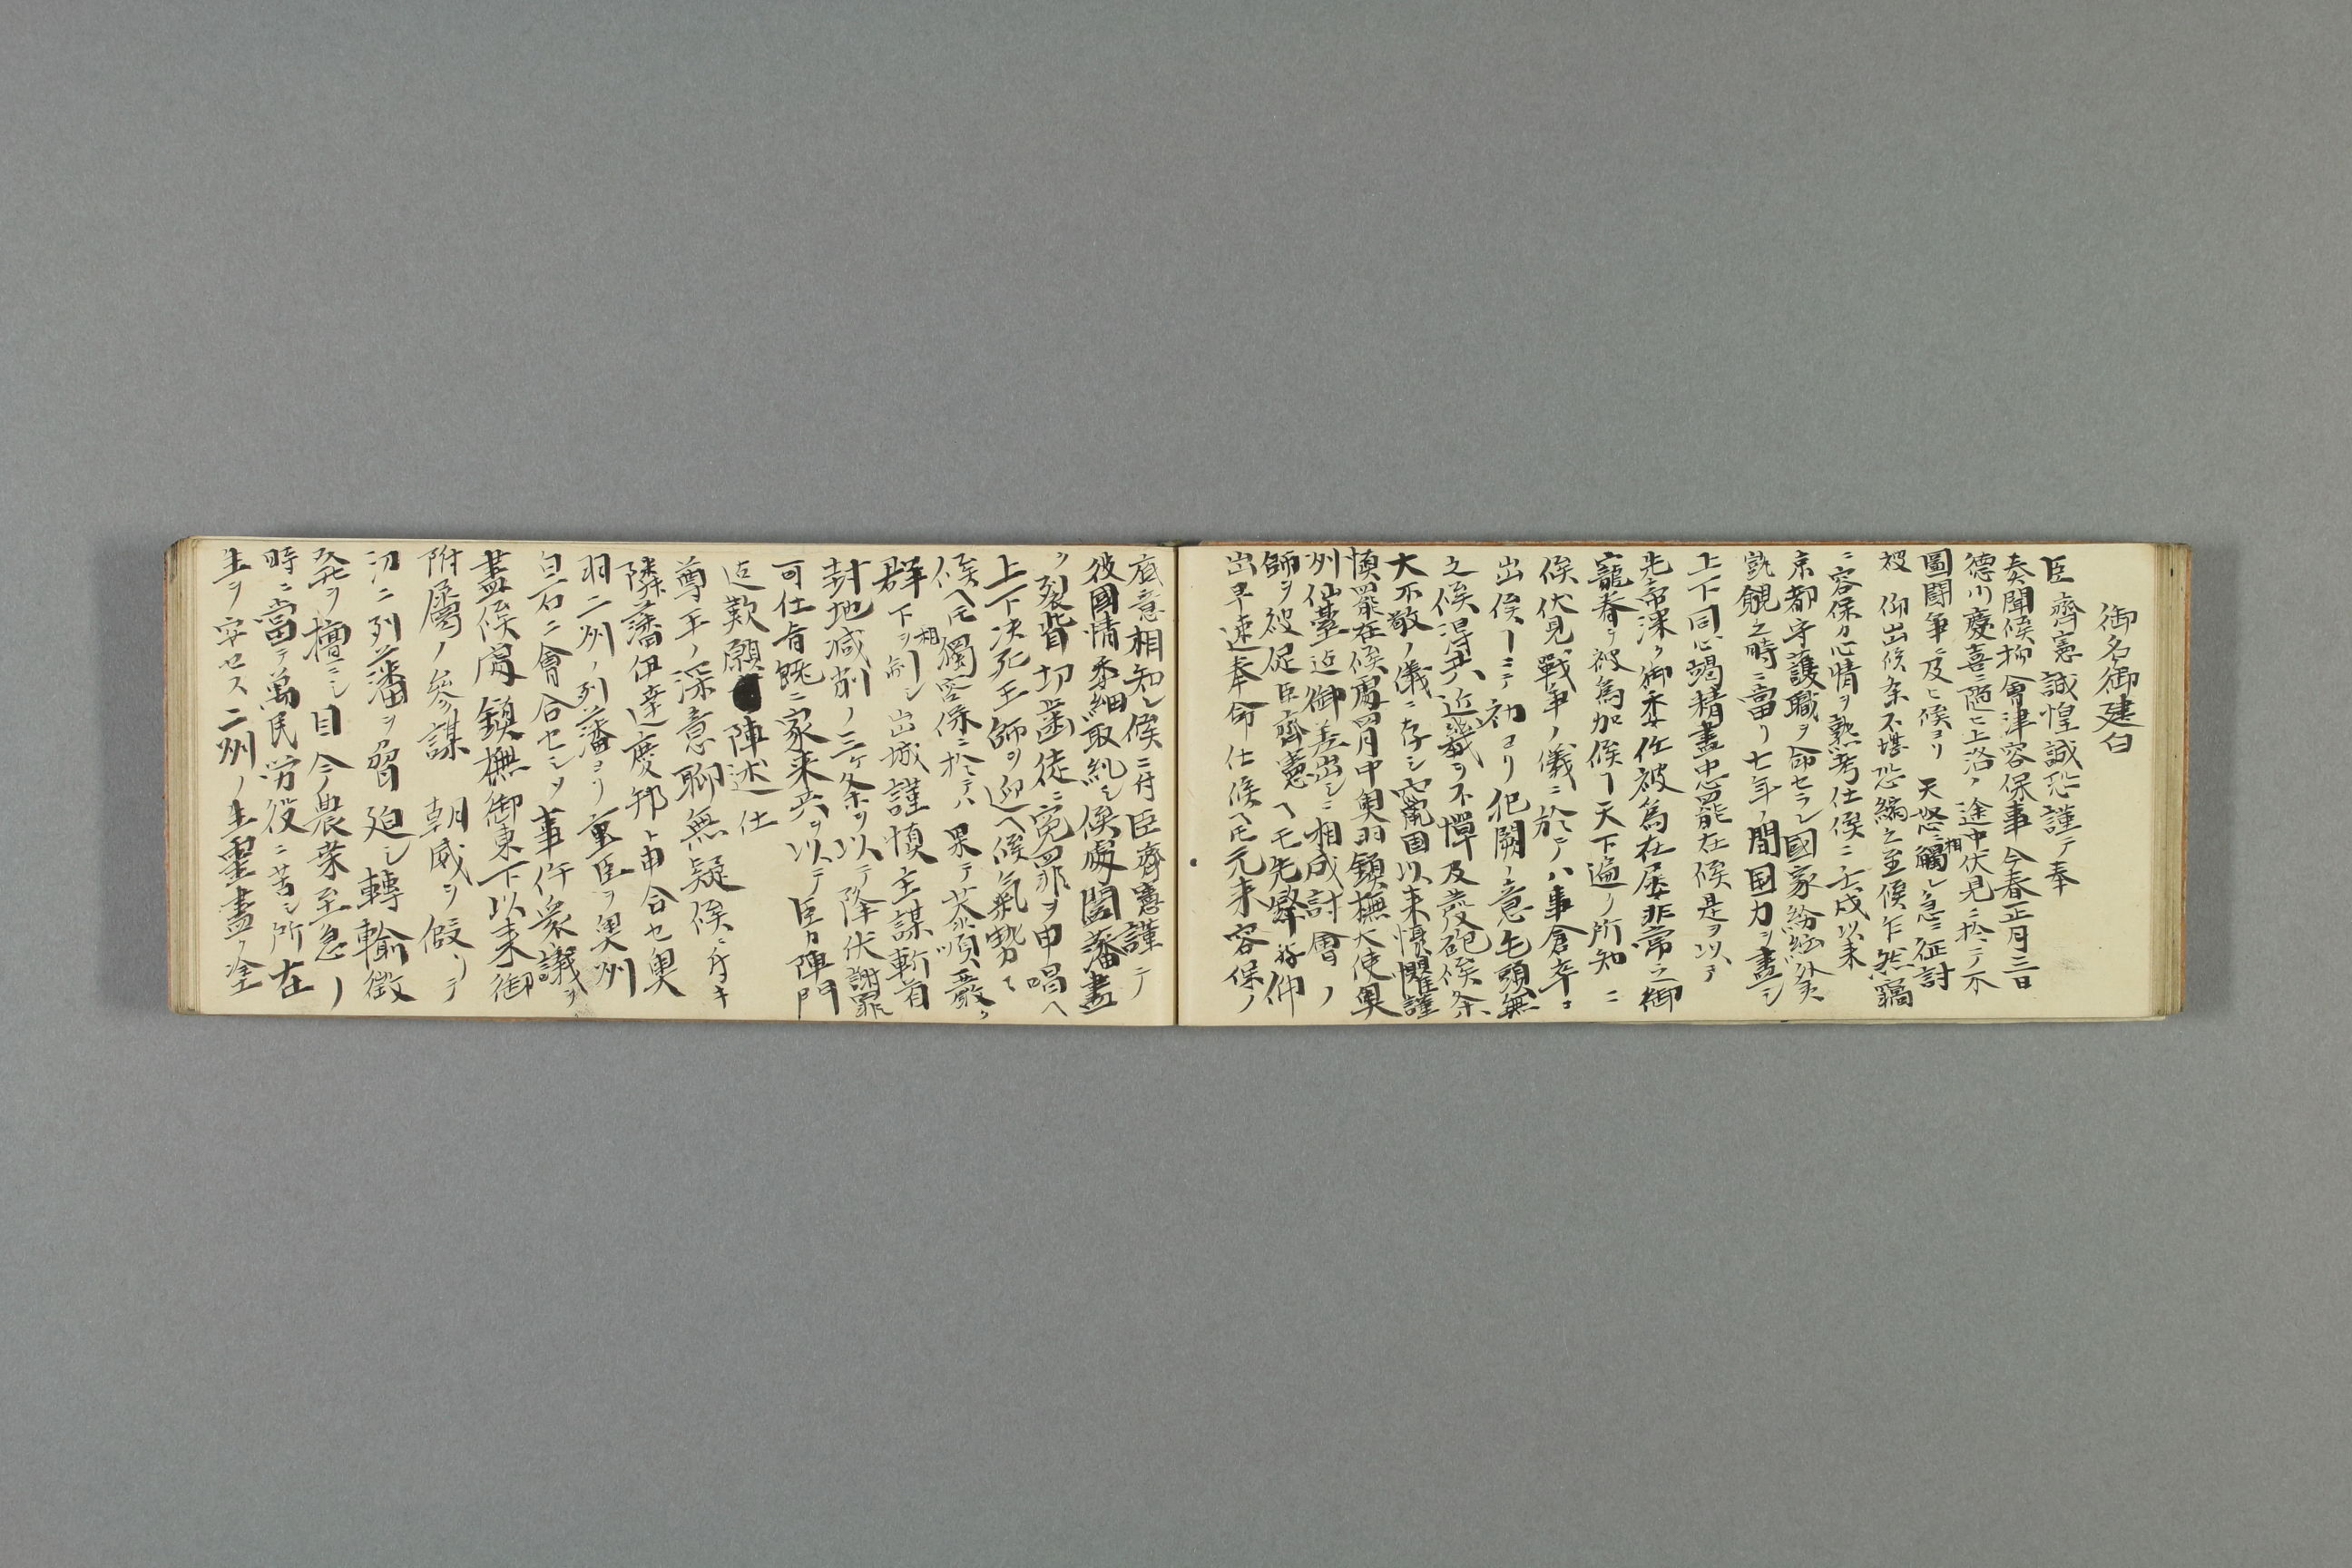 御名御建白
臣齊憲誠惶誠恐謹テ奉
奏聞候抑會津容保事今春正月三日
德川慶喜ニ隨ヒ上洛ノ途中伏見ニ於テ不
圖鬪争ニ及ヒ候ヨリ 天怒ニ相觸レ急ニ征討
被 仰出候条不堪恐縮之至候乍然竊
ニ容保カ心情ヲ熟考仕候ニ壬戌以来
京都守護職ヲ命セラレ國家紛紜外夷
覬覦之時ニ當リ七年ノ間国力ヲ盡シ
上下同心竭精盡忠罷在候是ヲ以テ
先帝深ク御委任被為在屡非常之御
寵眷ヲ被為加候ヿ天下遍ク所知ニ
候伏見戰争ノ儀ニ於テハ事倉卒ニ
出候ヿニテ初ヨリ犯闕ノ意毛頭無
之候得共近畿ヲ不憚及發砲候条
大不敬ノ儀ニ存シ帰国以来恐懼謹
慎罷在候處二月中奥羽鎮撫大使奥
州仙臺迄御差出シニ相成討會ノ
師ヲ被促臣齊憲ヘモ先鋒被仰
出早速奉命仕候ヘ圧元来容保ノ
底意相知レ候ニ付臣齊憲謹テ
彼國情委細取糺シ候處闔藩盡
ク裂眥切歯徒ニ冤罪ヲ申唱ヘ
上下決死王師ヲ迎ヘ候氣勢ニ
候ヘ圧獨容保ニ於テハ果テ恭順嚴ク
群下ヲ相制シ出城謹慎主謀斬首
封地減削ノ三ケ条ヲ以テ降伏謝罪
可仕旨既ニ家来共ヲ以テ臣カ陣門
迄歎願陣述仕
尊王ノ深意聊無疑候ニ付キ
隣藩伊達慶邦ト申合セ奥
羽二州ノ列藩ヨリ重臣ヲ奥州
白石ニ會合セシメ事件衆議ヲ
盡候處鎮撫御東下以来御
附屬ノ参謀 朝威ヲ假リテ
切ニ列藩ヲ脅迫シ轉輸徴
発ヲ擅ニシ目今ノ農業至急ノ
時ニ當テ萬民労役ニ苦シ所在
生ヲ安セス二州ノ生靈盡ク塗